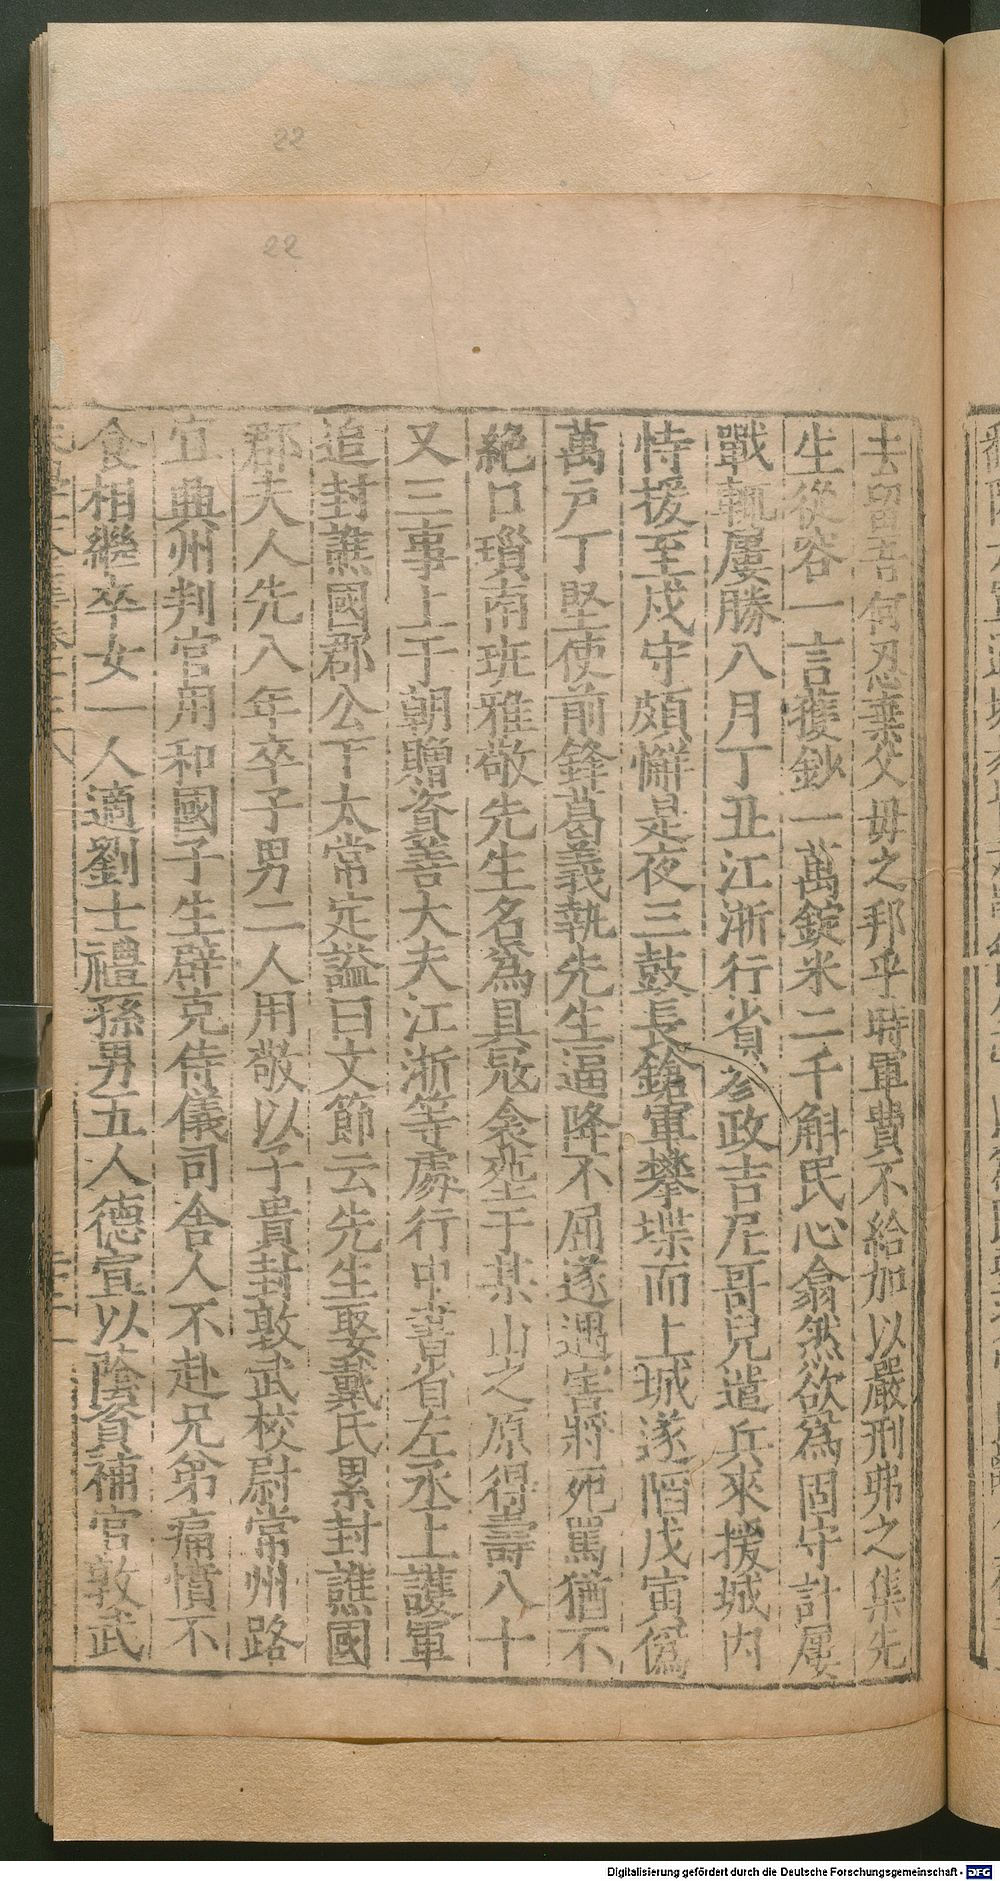 22
22
去留吾何忍棄父母之邦乎時軍費不給加以嚴刑弗之集先
生從容一言獲鈔一萬錠米二千斛民心翕然欲為固守計屢
戰輒屢勝八月丁丑江浙行省參政吉尼哥兒遣兵來援城內
恃援至戍守頗懈是夜三鼓長鎗軍攀堞而上城遂陷戊寅偽
萬戶丁堅使前鋒葛義執先生逼降不屈遂遇害將死罵猶不
絕口瑣南班雅敬先生名為具冦衾塟于某山之原得壽八十
又三事上于朝贈資善大夫江浙等處行中書省左丞上護軍
追封譙國郡公下太常定謚曰文節云先生娶戴氏累封譙國
郡夫人先八年卒子男二人用敬以子貴封敦武校尉常州路
宜興州判官用和國子生辟克侍儀司舍人不赴兄弟痛憤不
食相繼卒女一人適劉士禮孫男五人德宣以蔭資補官敦武
Digitalisierung gefördert durch die Deutsche Forschungsgemeinschaft - DFG